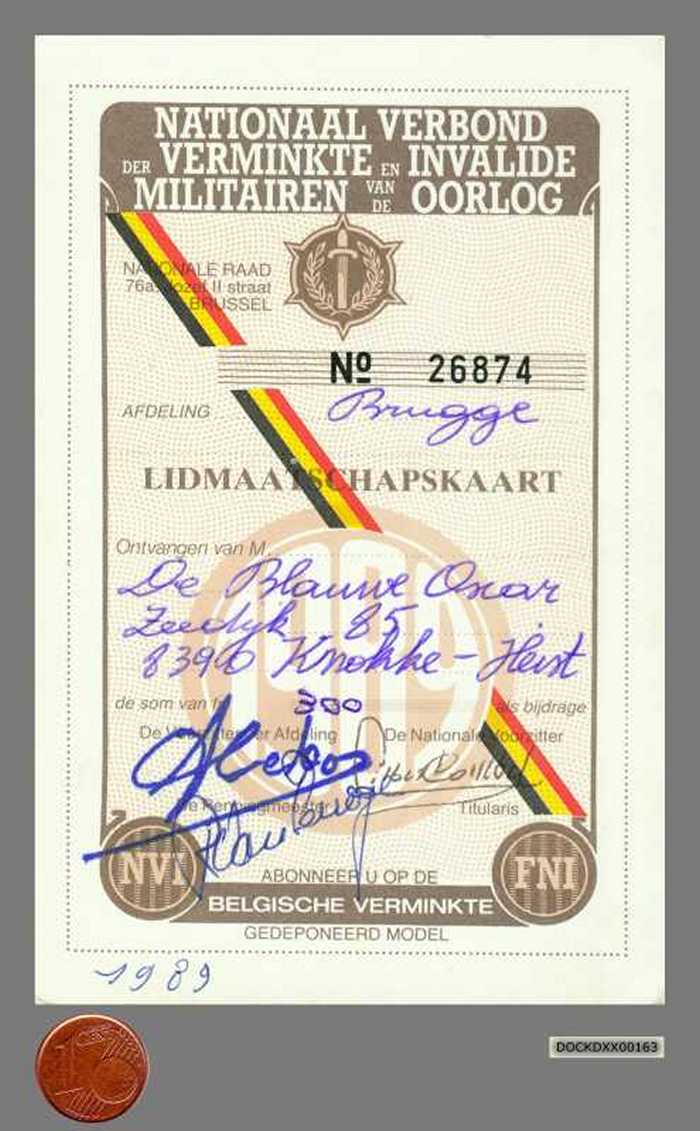 NATIONAAL VERBOND
DER VERMINKTE EN INVALIDE
MILITAIREN VAN DE OORLOG
NATIONALE RAAD
76a, Jozef II straat
BRUSSEL
Nº 26874
AFDELING Brugge
LIDMAATSCHAPSKAART
1989
Ontvangen van M.
De Blauwe Oscar
Zeedijk 85
8390 Knokke-Heist
de som van fr. 300 als bijdrage
De Voorzitter der Afdeling De Nationale Voorzitter
De Penningmeester Titularis
NVI FNI
ABONNEER U OP DE
BELGISCHE VERMINKTE
GEDEPONEERD MODEL
1989
1
DOCKDXX00163